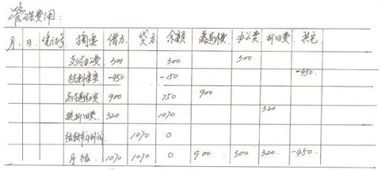 管理费用:
月 日 凭证号 摘要 借方 贷方 余额 差旅费 办公费 折旧费 其它
支付办公费 300 300 300
-450 -150 -450
900 750 900
提折旧费 320 1070 320
1070 0
月结 1070 1070 0 900 300 320 -450